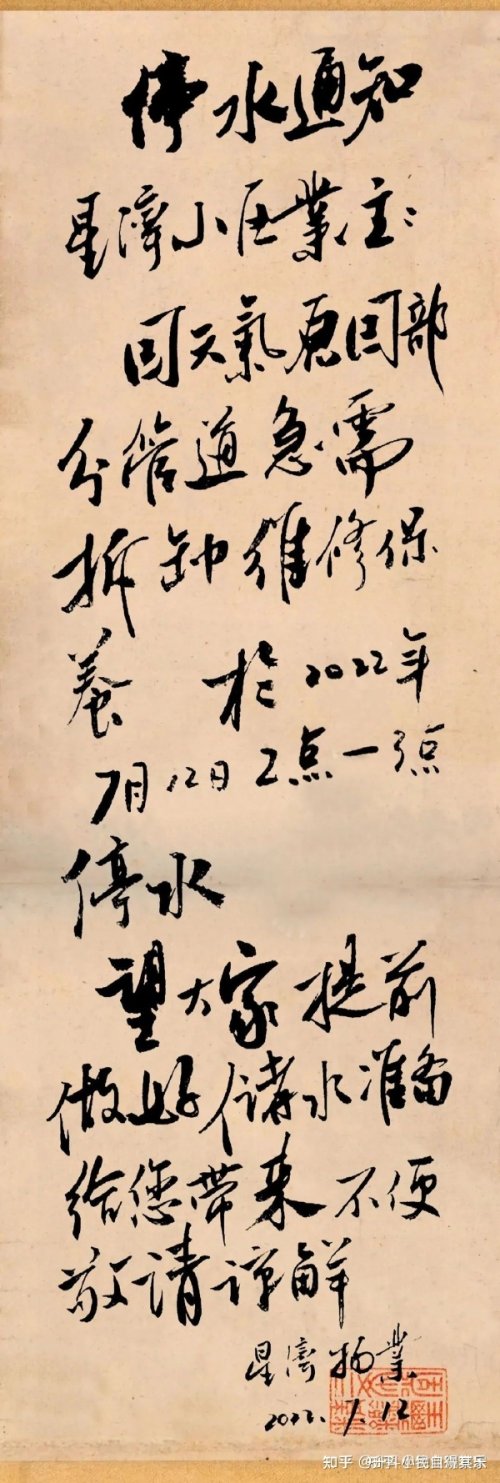 停水通知
星濟小区業主:
因天氣原因部
分管道急需
拆卸維修保
養 於2022年
7月12日2点一3点
停水
望大家提前
做好储水准备
给您带来不便
敬请谅解
星濟物業
2022.7.12
知乎 @民自得其乐